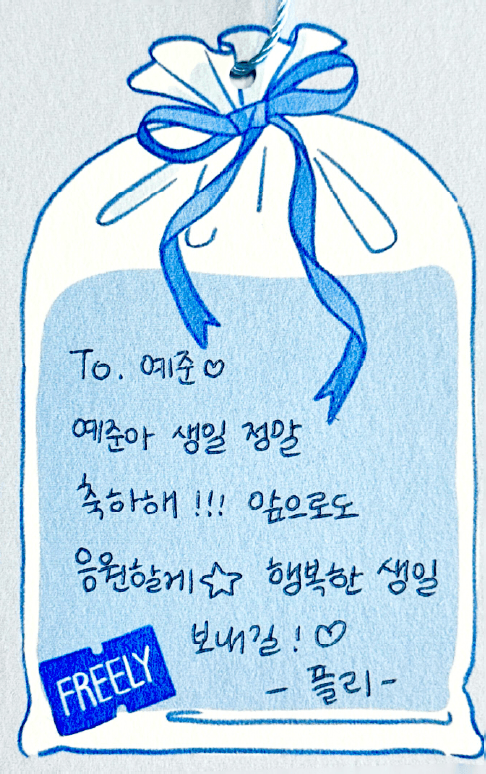 To. 예준♡
예준아 생일 정말
축하해 !!! 앞으로도
응원할게☆ 행복한 생일
보내길 ! ♡
- 플리 -
FREELY